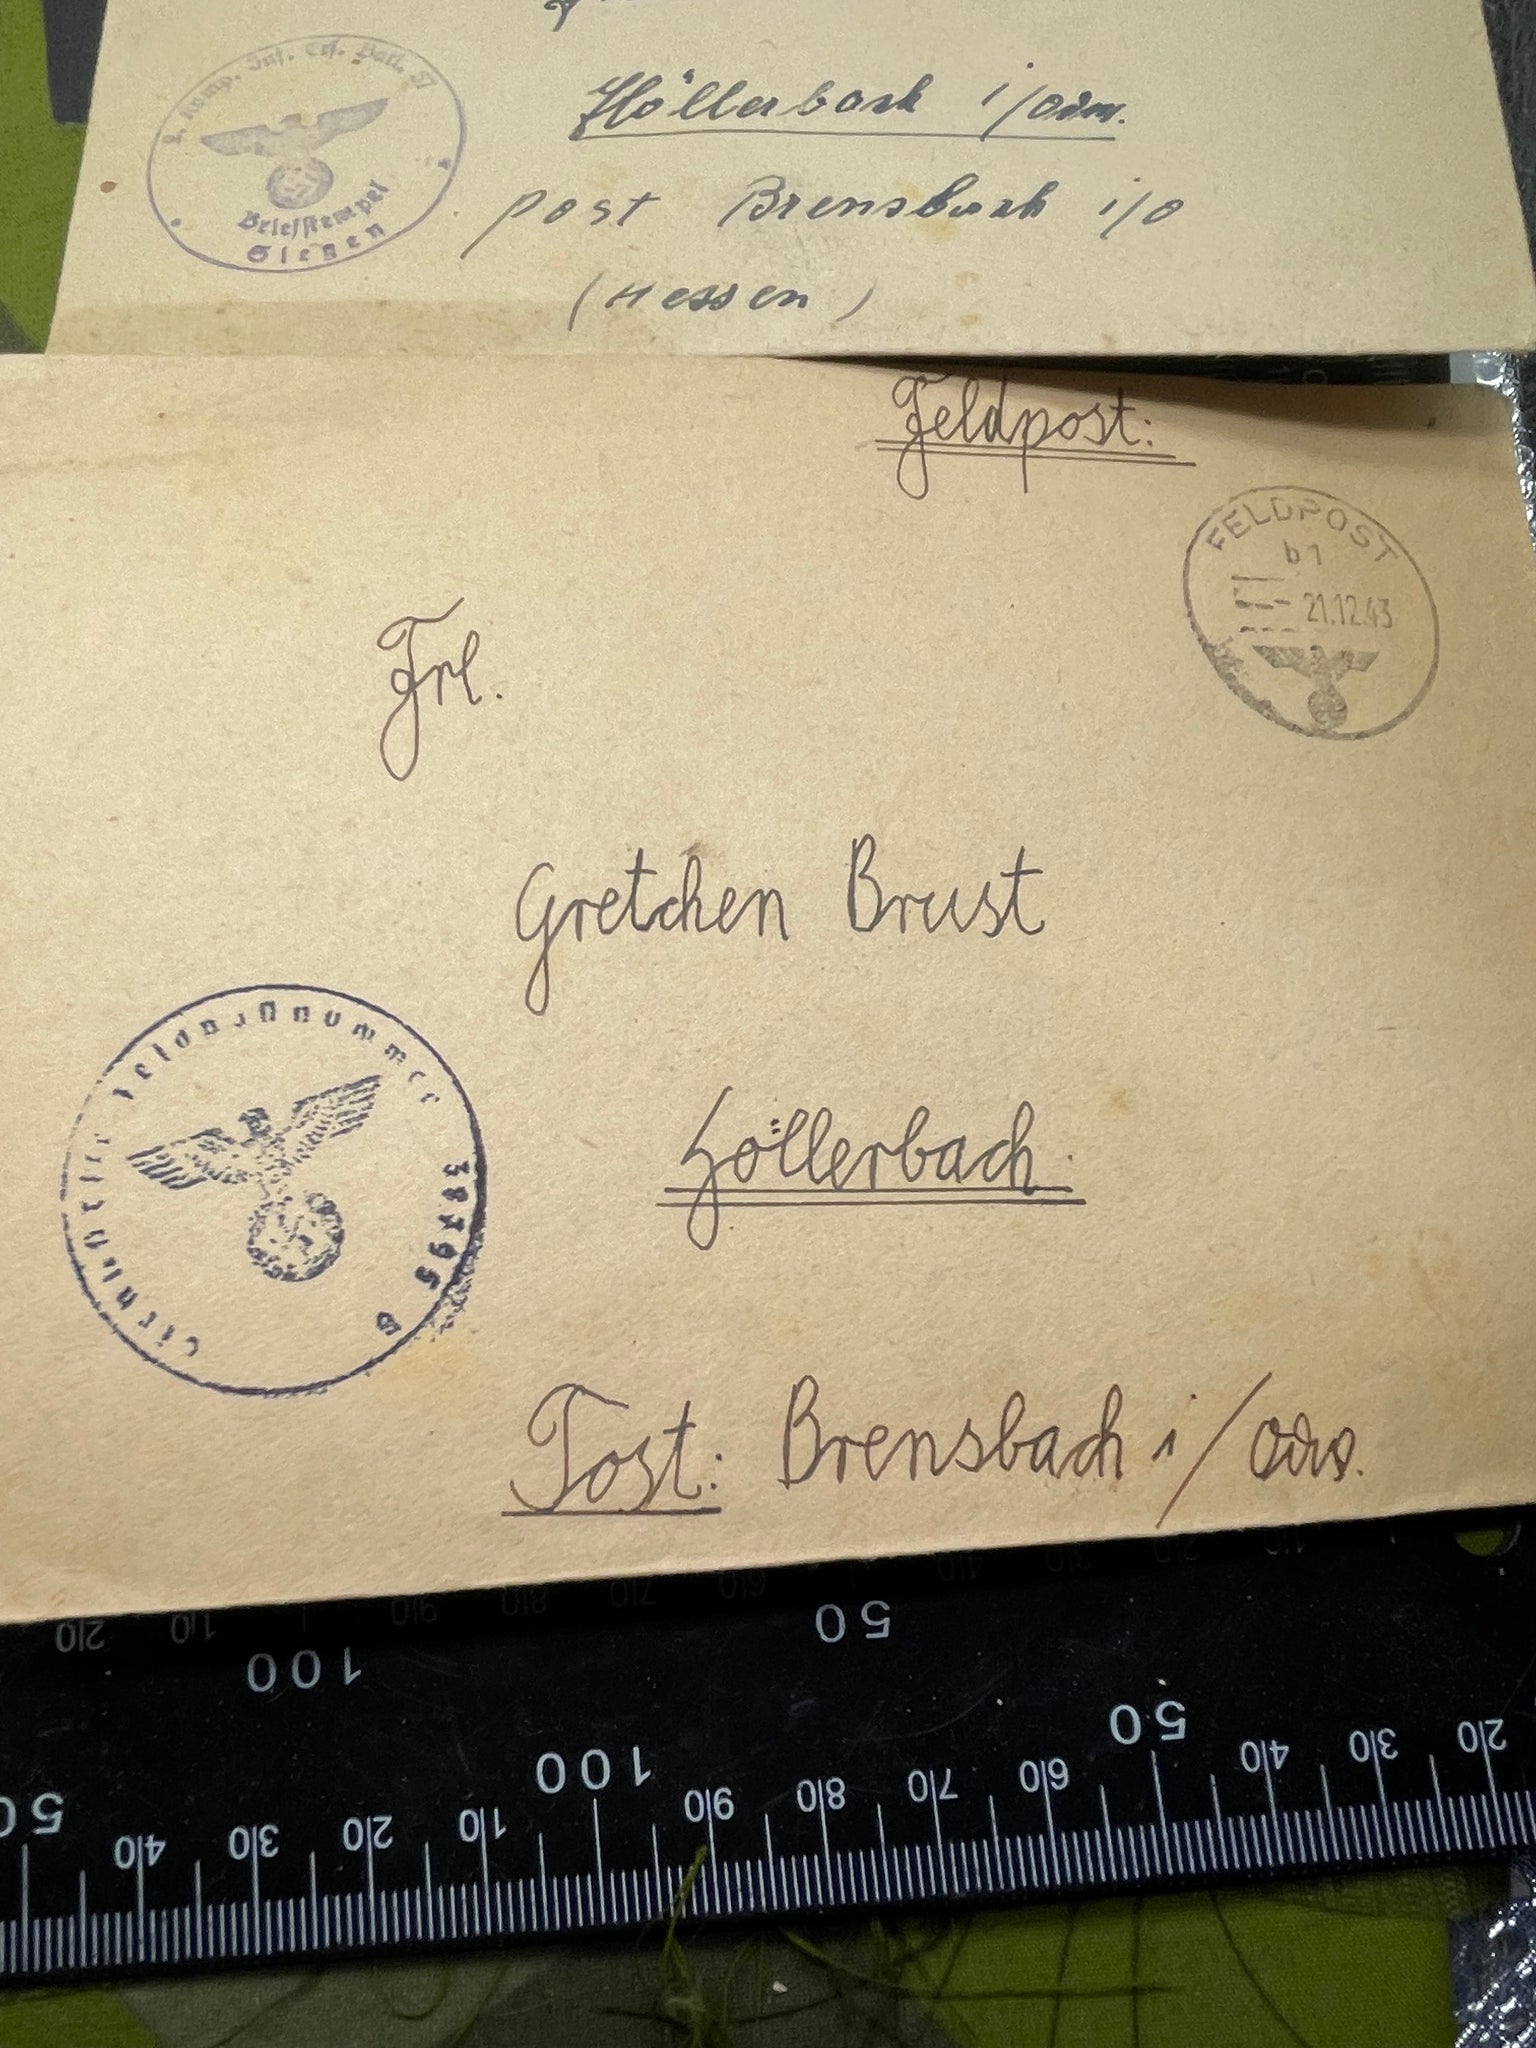 Komp. Inf. Ers. Batl. 57
Briefstempel
Siegen
Höllerbach i/Odw.
post Brensbach i/O
(Hessen)
Feldpost:
FELDPOST
b 1
21.12.43
Frl.
Gretchen Brust
Dienststelle Feldpostnummer 38795 B
Höllerbach.
Post: Brensbach i/Odw.
50
100
50
100
50
40
30
20
10
90
80
70
60
40
30
20